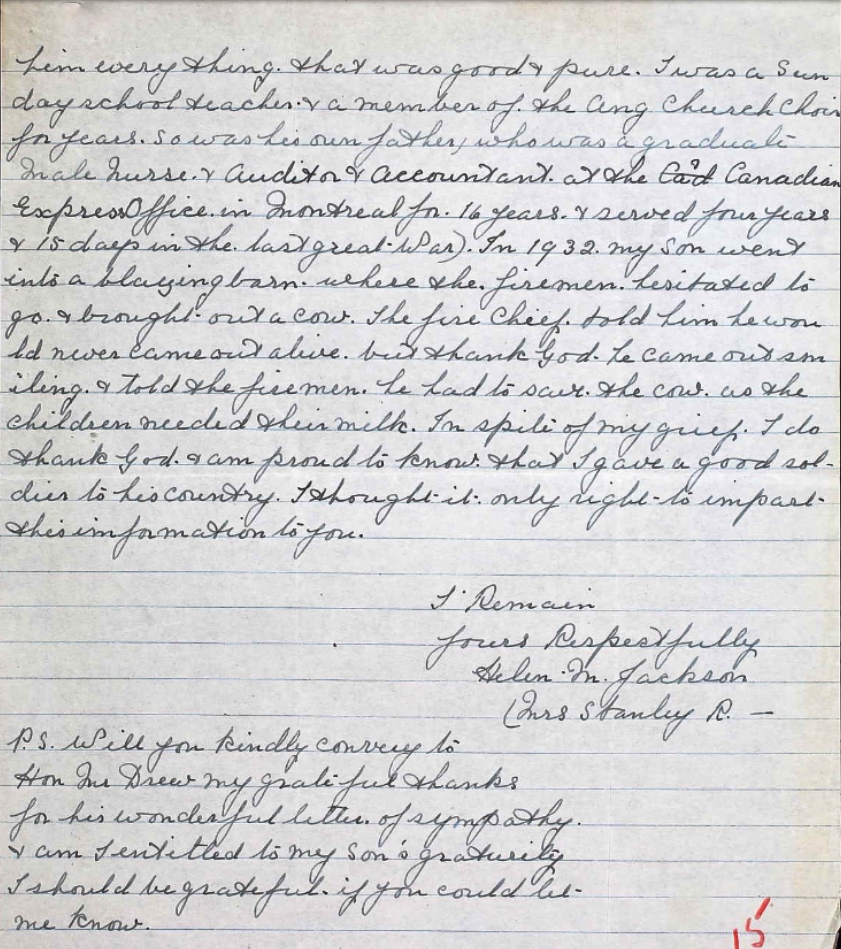 him every thing. that was good & pure. I was a Sun
day school teacher. & a member of. the Ang Church Choir
for years. so was his own father, who was a graduate
Male Nurse. & Auditor & Accountant. at the Ca'd Canadian
Express Office. in Montreal for. 16 years. & served four years
& 15 days in the. last great War). In 1932. my son went
into a blazing barn. where the. firemen. hesitated to
go. & brought out a cow. The fire Chief. told him he wou
ld never came out alive. but thank God. he came out sm
iling. & told the firemen. he had to save. the cow. as the
children needed their milk. In spite of my grief. I do
thank God. & am proud to know. that I gave a good sol-
dier to his country. I thought it. only right to impart
this information to you.
I Remain
Yours Respectfully
Helen. M. Jackson
(Mrs Stanley R. —
P.S. Will you kindly convey to
Hon Mr Drew my grateful thanks
for his wonderful letter. of sympathy.
& am I entitled to my son's gratuity
I should be grateful. if you could let
me know.
15